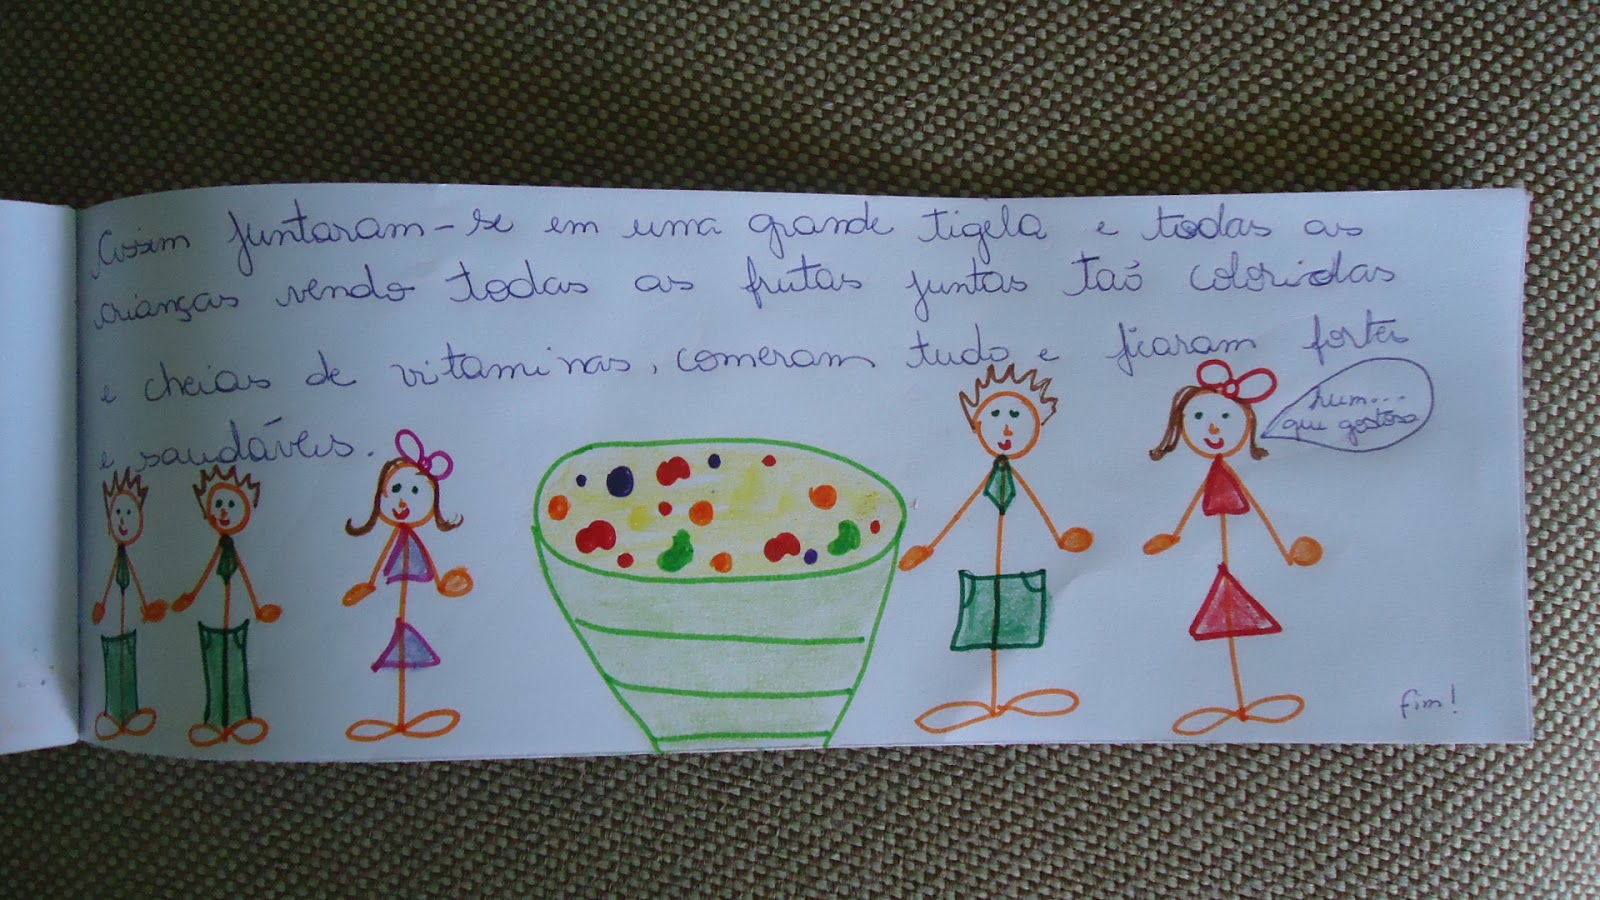 Assim juntaram-se em uma grande tigela e todas as
crianças vendo todas as frutas juntas taõ coloridas
e cheias de vitaminas, comeram tudo e ficaram fortes
e saudáveis.
hum...
que gostoso
fim!